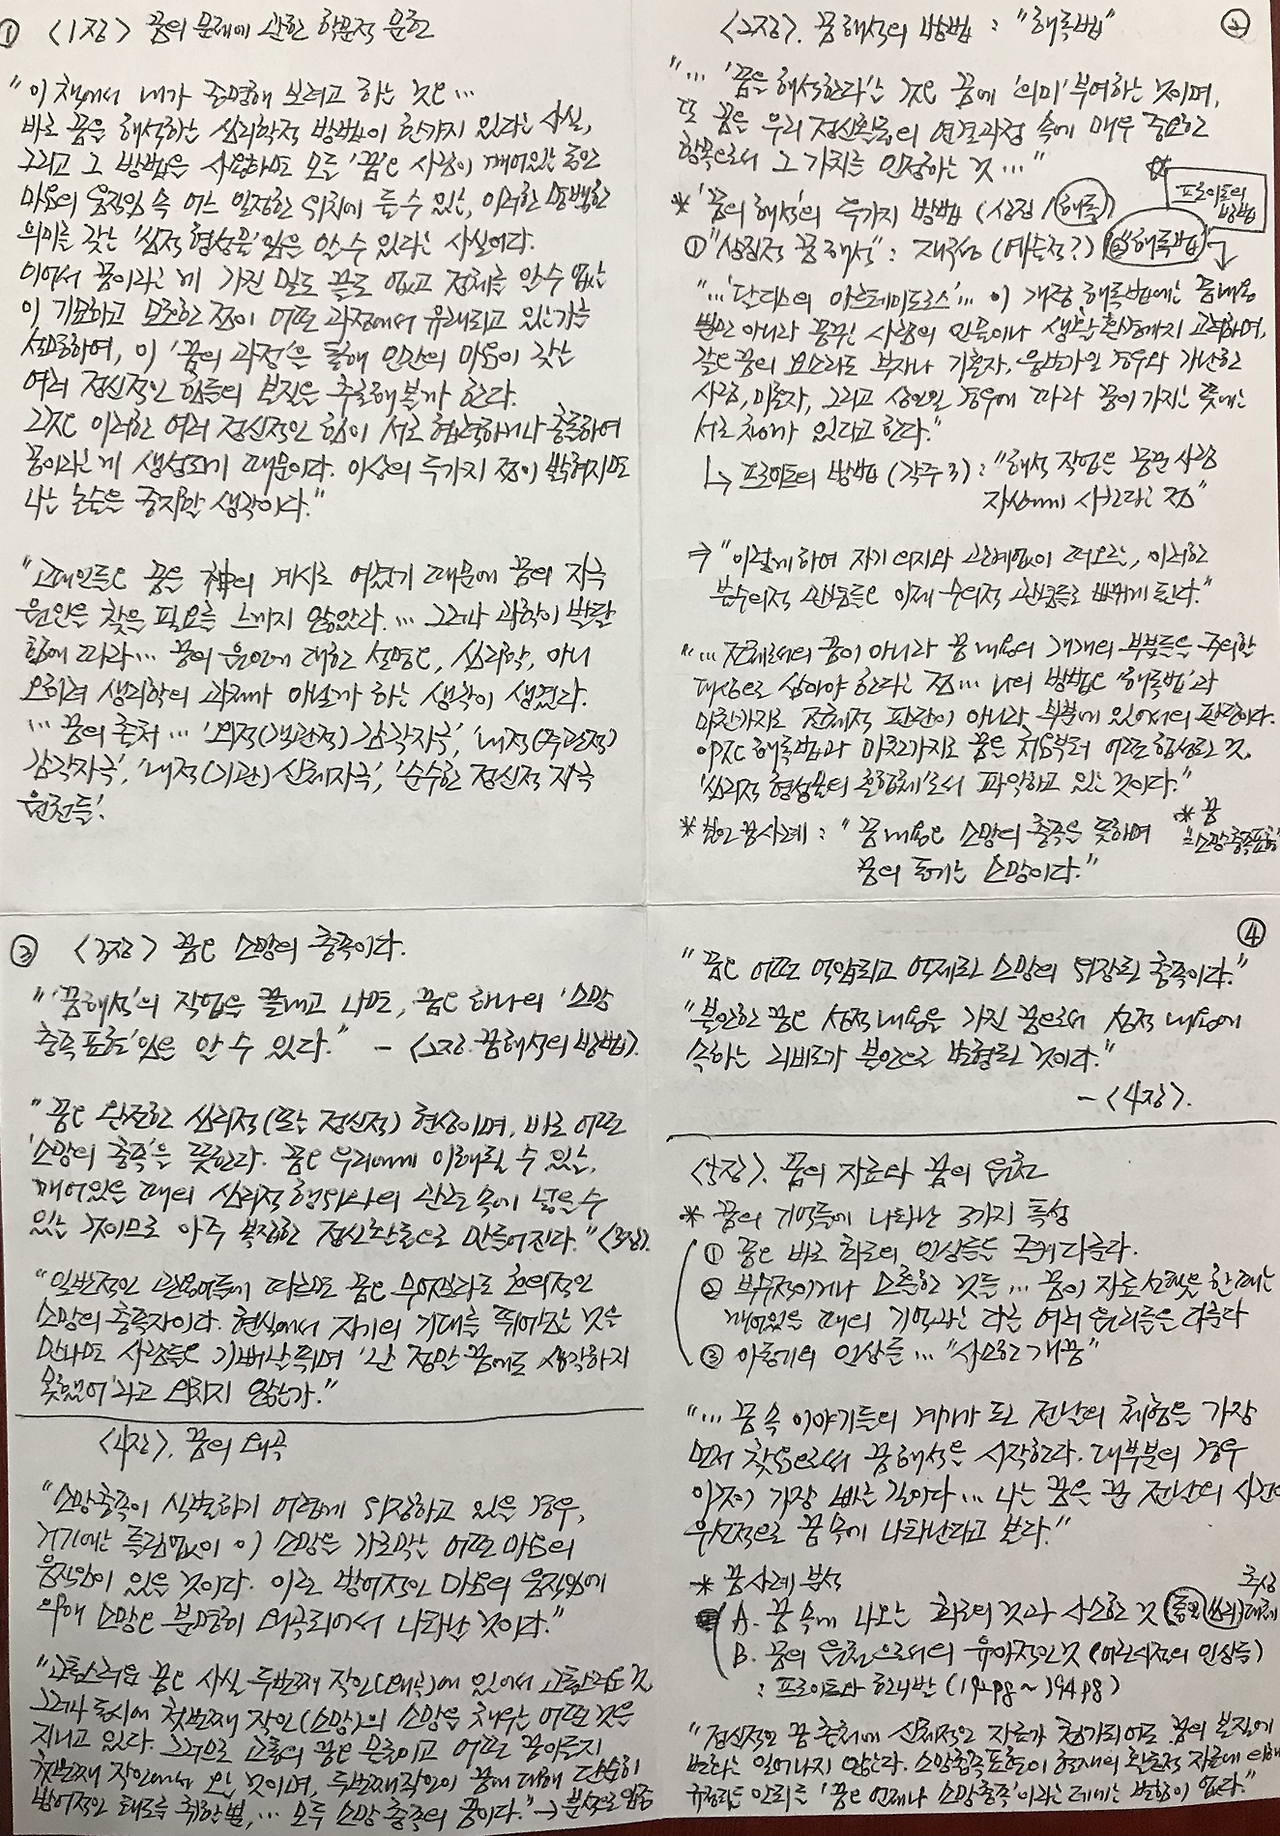 ① <1장> 꿈의 문제에 관한 학문적 문헌
"이 책에서 내가 증명해 보려고 하는 것은...
바로 꿈을 해석하는 심리학적 방법이 한가지 있다는 사실,
그리고 그 방법을 사용하면 모든 '꿈'은 사람이 깨어있는 동안
마음의 움직임 속 어느 일정한 위치에 둘 수 있는, 이러한 명백한
의미를 갖는 '심적 형성물'임을 알 수 있다는 사실이다.
이어서 꿈이라는 게 가진 밑도 끝도 없고 정체를 알 수 없는
이 기묘하고 모호한 점이 어떤 과정에서 유래되고 있는가를
설명하여, 이 '꿈의 과정'을 통해 인간의 마음이 갖는
여러 정신적인 힘들의 본질을 추출해볼까 한다.
그것은 이러한 여러 정신적인 힘이 서로 협력하거나 충돌하여
꿈이라는 게 생성되기 때문이다. 이상의 두가지 점이 밝혀지면
나는 논술을 중지할 생각이다."
"고대인들은 꿈을 神의 계시로 여겼기 때문에 꿈의 자극
원인을 찾을 필요를 느끼지 않았다. ... 그러나 과학이 발달
함에 따라... 꿈의 원인에 대한 설명은, 심리학, 아니
오히려 생리학의 과제가 아닐까 하는 생각이 생겼다.
... 꿈의 출처 ... '외적(객관적) 감각자극', '내적(주관적)
감각자극', '내적(기관) 신체자극', '순수한 정신적 자극
원천들'.
② <2장>. 꿈 해석의 방법 : "해독법"
"... '꿈을 해석한다'는 것은 꿈에 '의미' 부여하는 것이며,
또 꿈을 우리 정신활동의 연결과정 속에 매우 중요한
항목으로서 그 가치를 인정하는 것..."
* '꿈의 해석'의 두가지 방법 (상징 / 해독)
프로이트의 방법
① "상징적 꿈 해석" : 재구성 (예술적?) ② "해독법"
"...'달디스의 아르테미도로스'... 이 개정 해독법에는 꿈내용
뿐만 아니라 꿈꾸는 사람의 인물이나 생활환경까지 고려하며,
같은 꿈의 요소라도 부자나 기혼자, 웅변가일 경우와 가난한
사람, 미혼자, 그리고 상인일 경우에 따라 꿈이 가지는 뜻에는
서로 차이가 있다고 한다."
↳ 프로이트의 방법 (각주 3) : "해석 작업을 꿈꾼 사람
자신에게 시킨다는 점"
⇒ "이렇게 하여 자기 의지와 관계없이 떠오르는, 이러한
불수의적 관념들은 이제 수의적 관념들로 바뀌게 된다."
"... 전체로서의 꿈이 아니라 꿈 내용의 개개의 부분들을 주의할
대상으로 삼아야 한다는 점... 나의 방법은 '해독법'과
마찬가지로 전체적 판단이 아니라 부분에 있어서의 판단이다.
이것은 해독법과 마찬가지로 꿈을 처음부터 어떤 합성된 것,
'심리적 형성물의 혼합체'로서 파악하고 있는 것이다."
* 본인 꿈사례 : "꿈 내용은 소망의 충족을 뜻하며
꿈의 동기는 소망이다."
* 꿈
= 소망충족표현
③ <3장> 꿈은 소망의 충족이다.
"'꿈해석'의 작업을 끝내고 나면, 꿈은 하나의 '소망
충족 표현'임을 알 수 있다." - <2장. 꿈해석의 방법>.
"꿈은 완전한 심리적(또는 정신적) 현상이며, 바로 어떤
'소망의 충족'을 뜻한다. 꿈은 우리에게 이해될 수 있는,
깨어있을 때의 심리적 행위와의 관련 속에 넣을 수
있는 것이므로 아주 복잡한 정신활동으로 만들어진다." <3장>.
"일반적인 관용어들에 따르면 꿈은 무엇보다도 호의적인
소망의 충족자이다. 현실에서 자기의 기대를 뛰어넘는 것을
만나면 사람들은 기뻐날뛰며 '난 정말 꿈에도 생각하지
못했어'라고 외치지 않는가."
<4장>. 꿈의 왜곡
"소망충족이 식별하기 어렵게 위장하고 있을 경우,
거기에는 틀림없이 이 소망을 가로막는 어떤 마음의
움직임이 있을 것이다. 이런 방어적인 마음의 움직임에
의해 소망은 분명히 왜곡되어서 나타난 것이다."
"고통스러운 꿈은 사실 두번째 작인(왜곡)에 있어서 고통스러운 것,
그러나 동시에 첫번째 작인(소망)의 소망을 채우는 어떤 것을
지니고 있다. 그러므로 고통의 꿈은 본래 어떤 꿈이든지
첫번째 작인에서 온 것이며, 두번째 작인이 꿈에 대해 단순히
방어적인 태도를 취한 뿐, ... 모두 소망 충족의 꿈이다." → 분석으로 입증
④
"꿈은 어떤 억압되고 억제된 소망의 위장된 충족이다."
"불안한 꿈은 성적 내용을 가진 꿈으로서 성적 내용에
속하는 리비도가 불안으로 변형된 것이다."
- <4장>.
<5장>. 꿈의 자료와 꿈의 원천
* 꿈의 기억들에 나타난 3가지 특성
① 꿈은 바로 최근의 인상들을 즐겨 다룬다.
② 부수적이거나 소홀한 것들 ... 꿈이 자료 선택을 할 때는
깨어있을 때의 기억과는 다른 여러 원리들을 따른다
③ 아동기의 인상들 ... "사소한 개꿈"
"... 꿈 속 이야기들의 계기가 된 전날의 체험을 가장
먼저 찾음으로써 꿈 해석을 시작한다. 대부분의 경우
이것이 가장 빠른 길이다 ... 나는 꿈을 꾼 전날의 사건이
우선적으로 꿈 속에 나타난다고 본다."
* 꿈사례 분석
A. 꿈 속에 나오는 최근의 것과 사소한 것
B. 꿈의 원천으로서의 유아적인 것 (어린시절의 인상들)
: 프로이트와 한니발 (192p ~ 194p)
"정신적인 꿈 출처에 신체적인 자료가 첨가되어도 꿈의 본질에
변화는 일어나지 않는다. 소망충족 표현이 현재의 활동적 자료에 의해
규정되든 안되든 '꿈은 언제나 소망충족'이라는 데에는 변함이 없다."